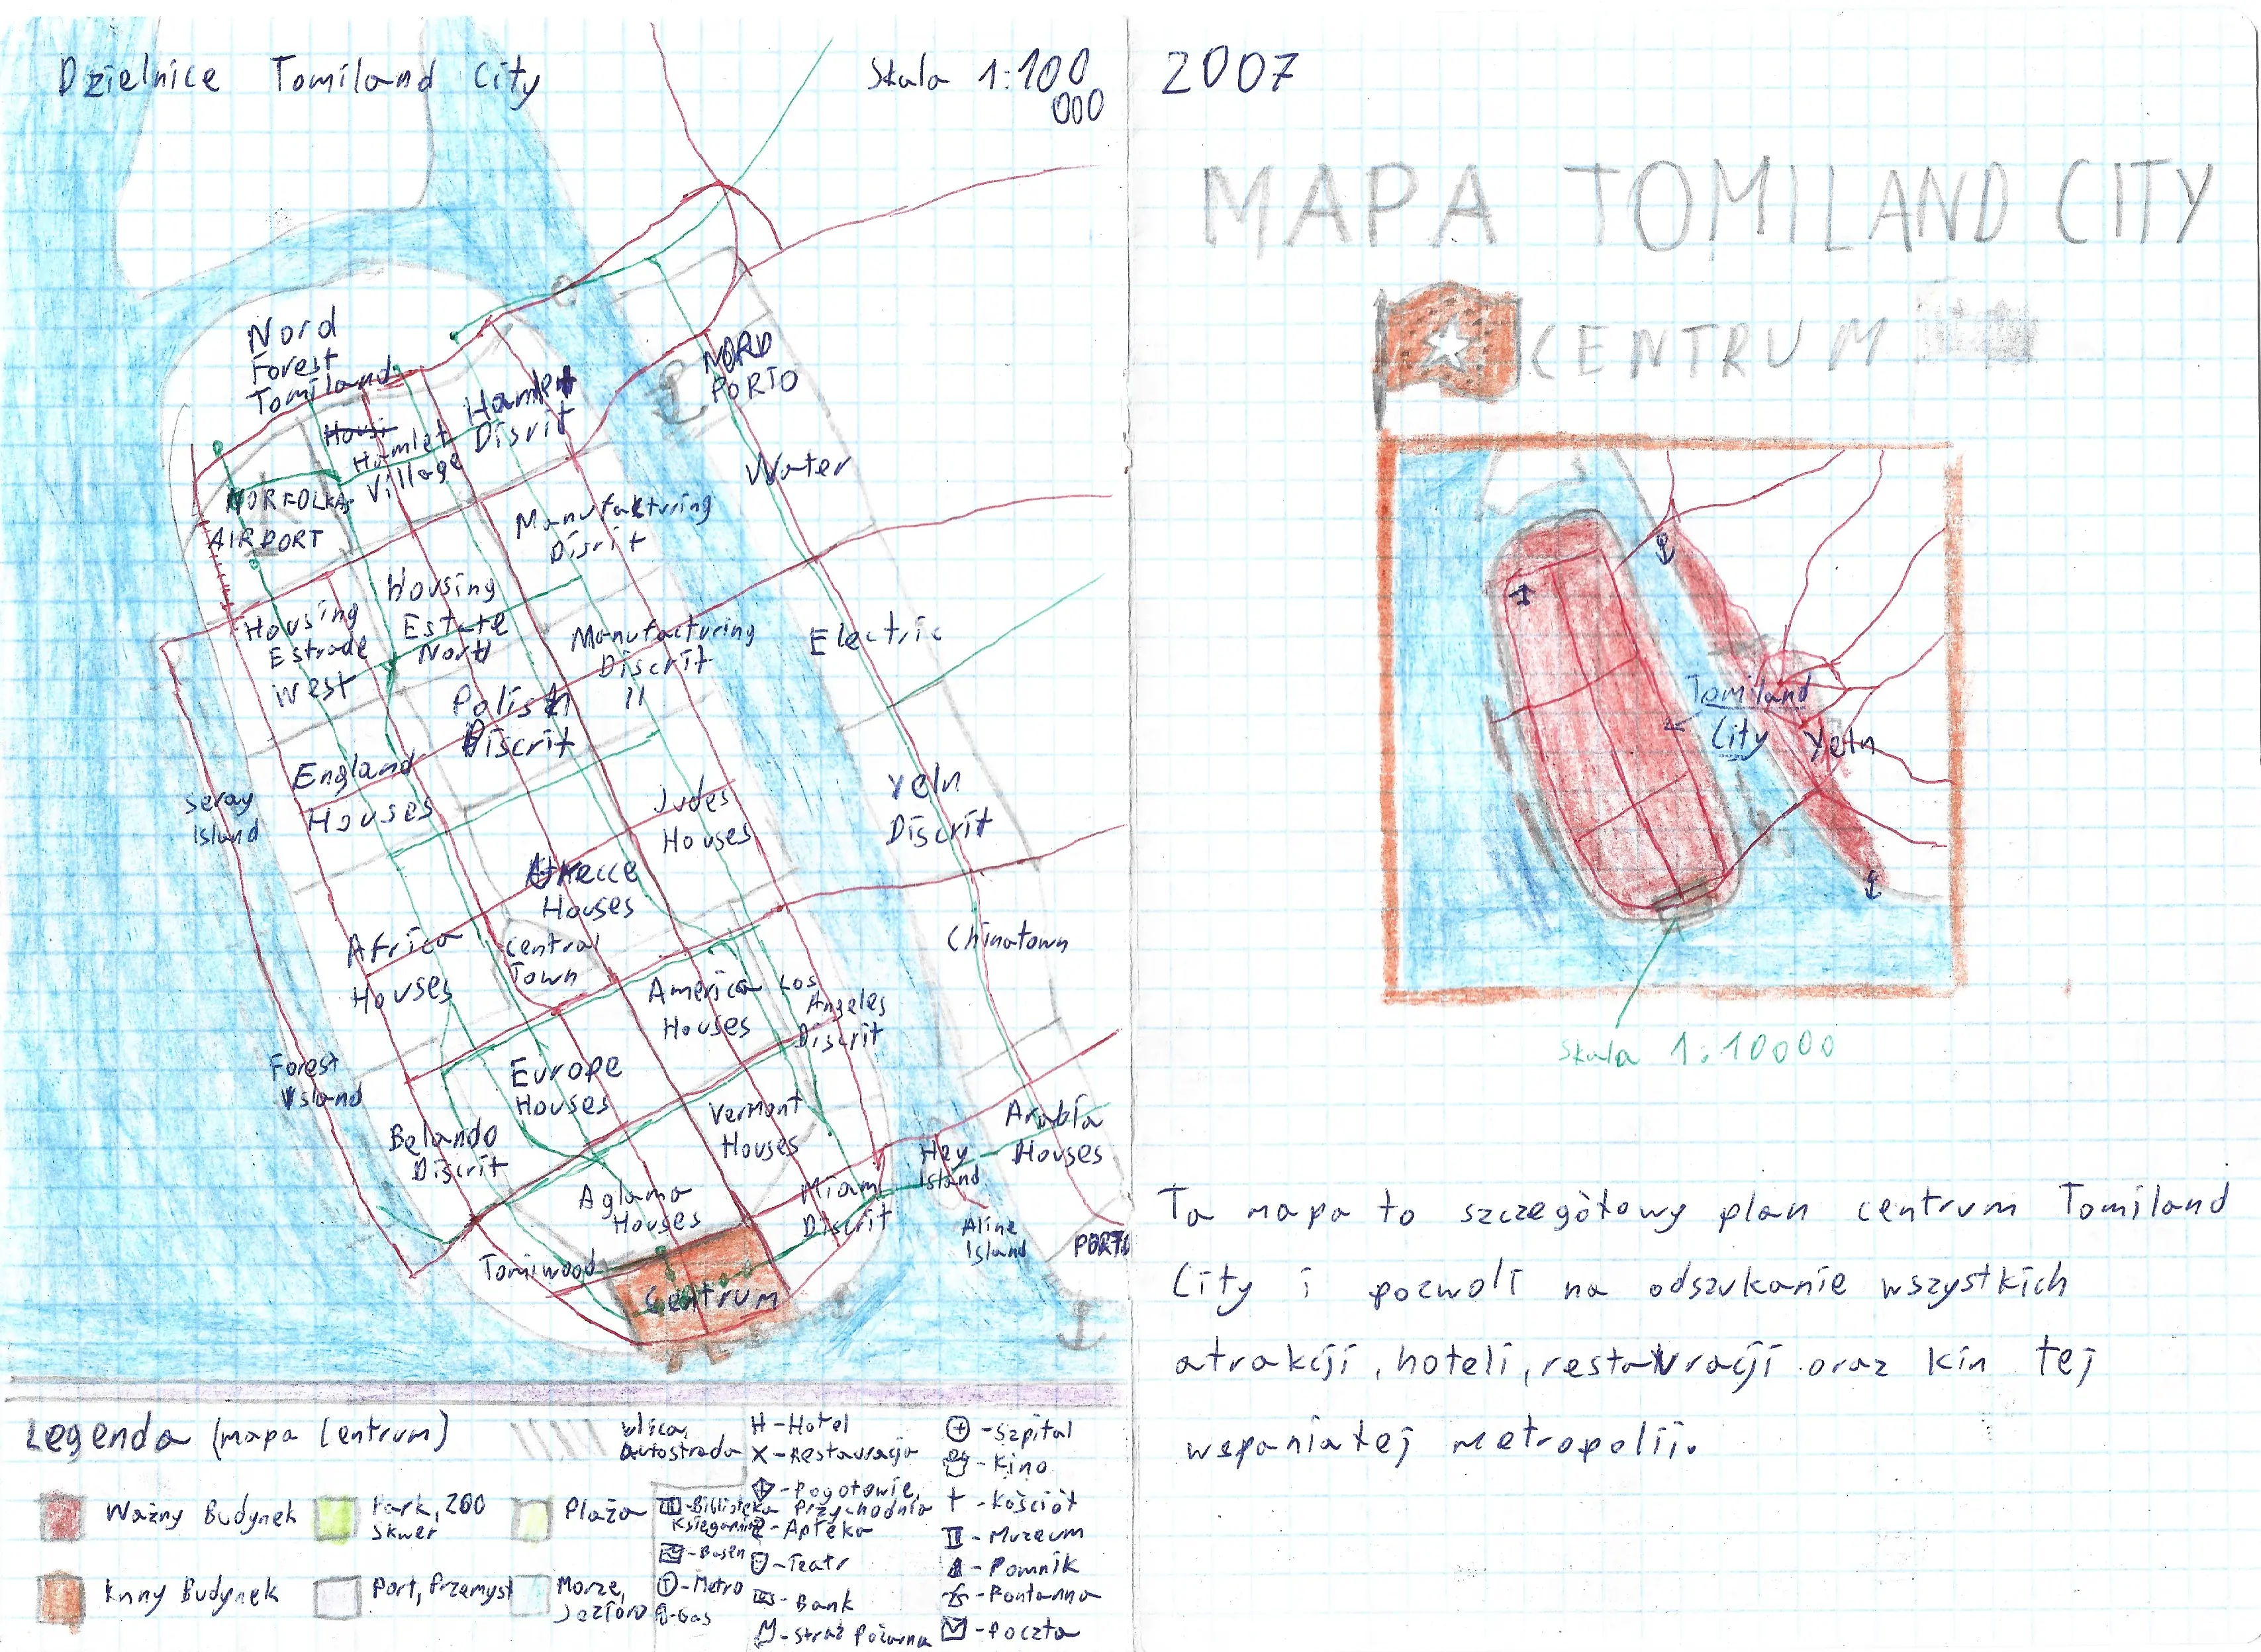 Dzielnice Tomiland City
Skala 1:100
000
Nord
Forest
Tomiland
Hamlet
Disrit
Housi
Hamlet
Village
NORFOLKA
AIRPORT
NORD
PORTO
Water
Manufakturing
Disrit
Housing
Estrade
West
Housing
Estate
Nord
Manufacturing
Discrit
II
Electric
Polish
Discrit
England
Houses
Seray
Island
Judes
Houses
Yeln
Discrit
Houses
Africa
Houses
Central
Town
America
Houses
Los
Angeles
Discrit
Chinatown
Forest
Island
Europe
Houses
Belando
Discrit
Vermont
Houses
Arabia
Houses
Hey
Island
Aglama
Houses
Miami
Discrit
Aline
Island
PORTO
Tomiwood
Centrum
PLAŻA
Legenda (mapa Centrum)
Ważny Budynek
Park, zoo
Skwer
Plaża
Inny Budynek
Port, Przemysł
Morze,
Jezioro
ulica,
autostrada
Biblioteka
Księgarnia
- Basen
- Metro
- Gas
H - Hotel
X - Restauracja
- Pogotowie,
Przychodnia
- Apteka
- Teatr
- Bank
- Straż Pożarna
- Szpital
- Kino
- Kościół
- Muzeum
- Pomnik
- Fontanna
- Poczta
2007
MAPA TOMILAND CITY
CENTRUM
Tomiland
City
Yeln
Skala 1:10000
Ta mapa to szczegółowy plan centrum Tomiland
City i pozwoli na odszukanie wszystkich
atrakcji, hoteli, restauracji oraz kin tej
wspaniałej metropolii.